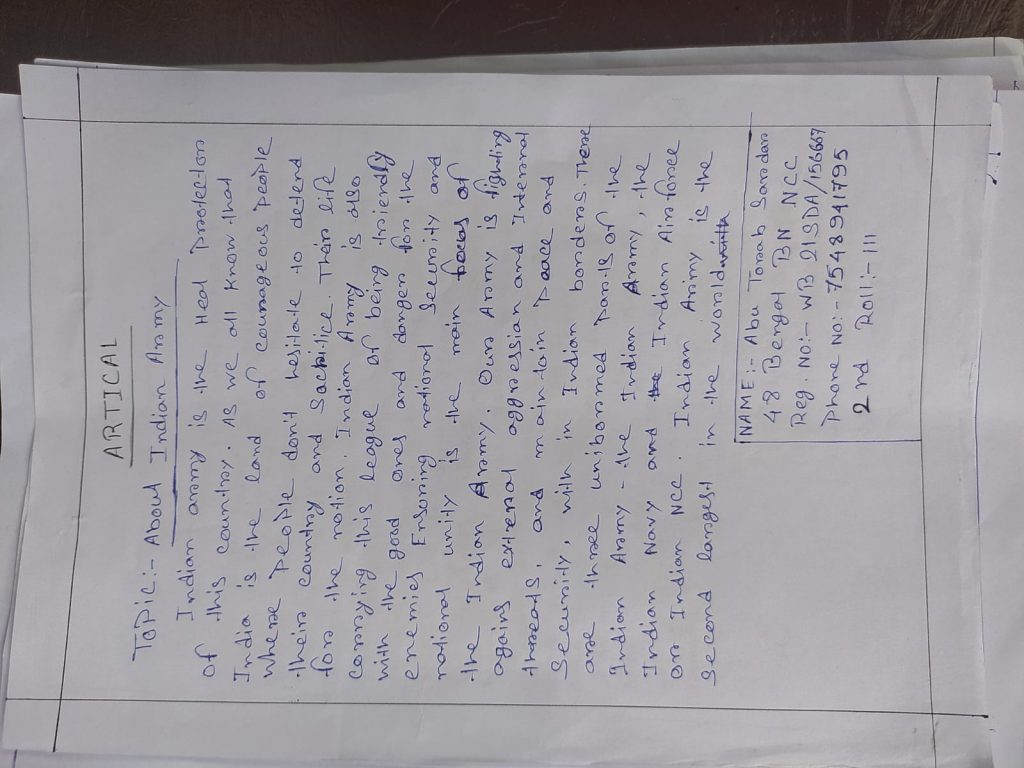 ARTICAL
TOPIC:- About Indian Army
Indian army is the Heal Protection
of this country. As we all know that
India is the land of courageous people
where people don't hesitate to defend
their country and Sacrifice. Their life
for the nation. Indian Army is also
carrying this league of being friendly
with the good ones and danger for the
enemies Ensoring national Security and
national unity is the main focus of
the Indian Army. Our Army is fighting
agains external aggression and Internal
threats, and maintain peace and
Security, with in Indian borders. There
are three uniformed parts of the
Indian Army - the Indian Army, the
Indian Navy and the Indian Airforce
or Indian NCC. Indian Army is the
second largest in the world
NAME:- Abu Torab Sardar
48 Bengal BN NCC
Reg. NO:- WB21SDA/156667
Phone NO:- 7548941795
2nd Roll:- 111